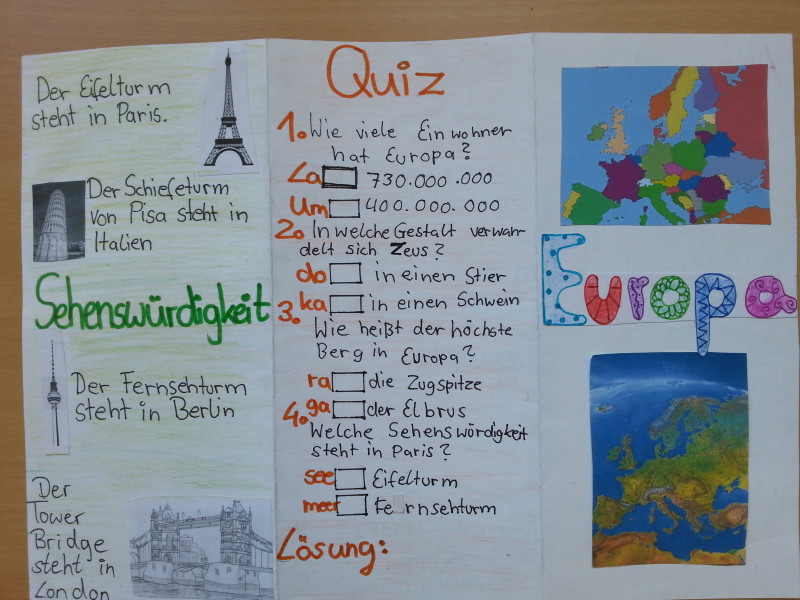 Der Eifelturm
steht in Paris.
Der Schiefeturm
von Pisa steht in
Italien
Sehenswürdigkeit
Der Fernsehturm
steht in Berlin
Der
Tower
Bridge
steht in
London
Quiz
1. Wie viele Einwohner
hat Europa?
La 730.000.000
Um 400.000.000
2. In welche Gestalt verwan
delt sich Zeus?
do in einen Stier
ka in einen Schwein
3. Wie heißt der höchste
Berg in Europa?
ra die Zugspitze
ga der Elbrus
4. Welche Sehenswördigkeit
steht in Paris?
see Eifelturm
meer Fernsehturm
Lösung:
Europa